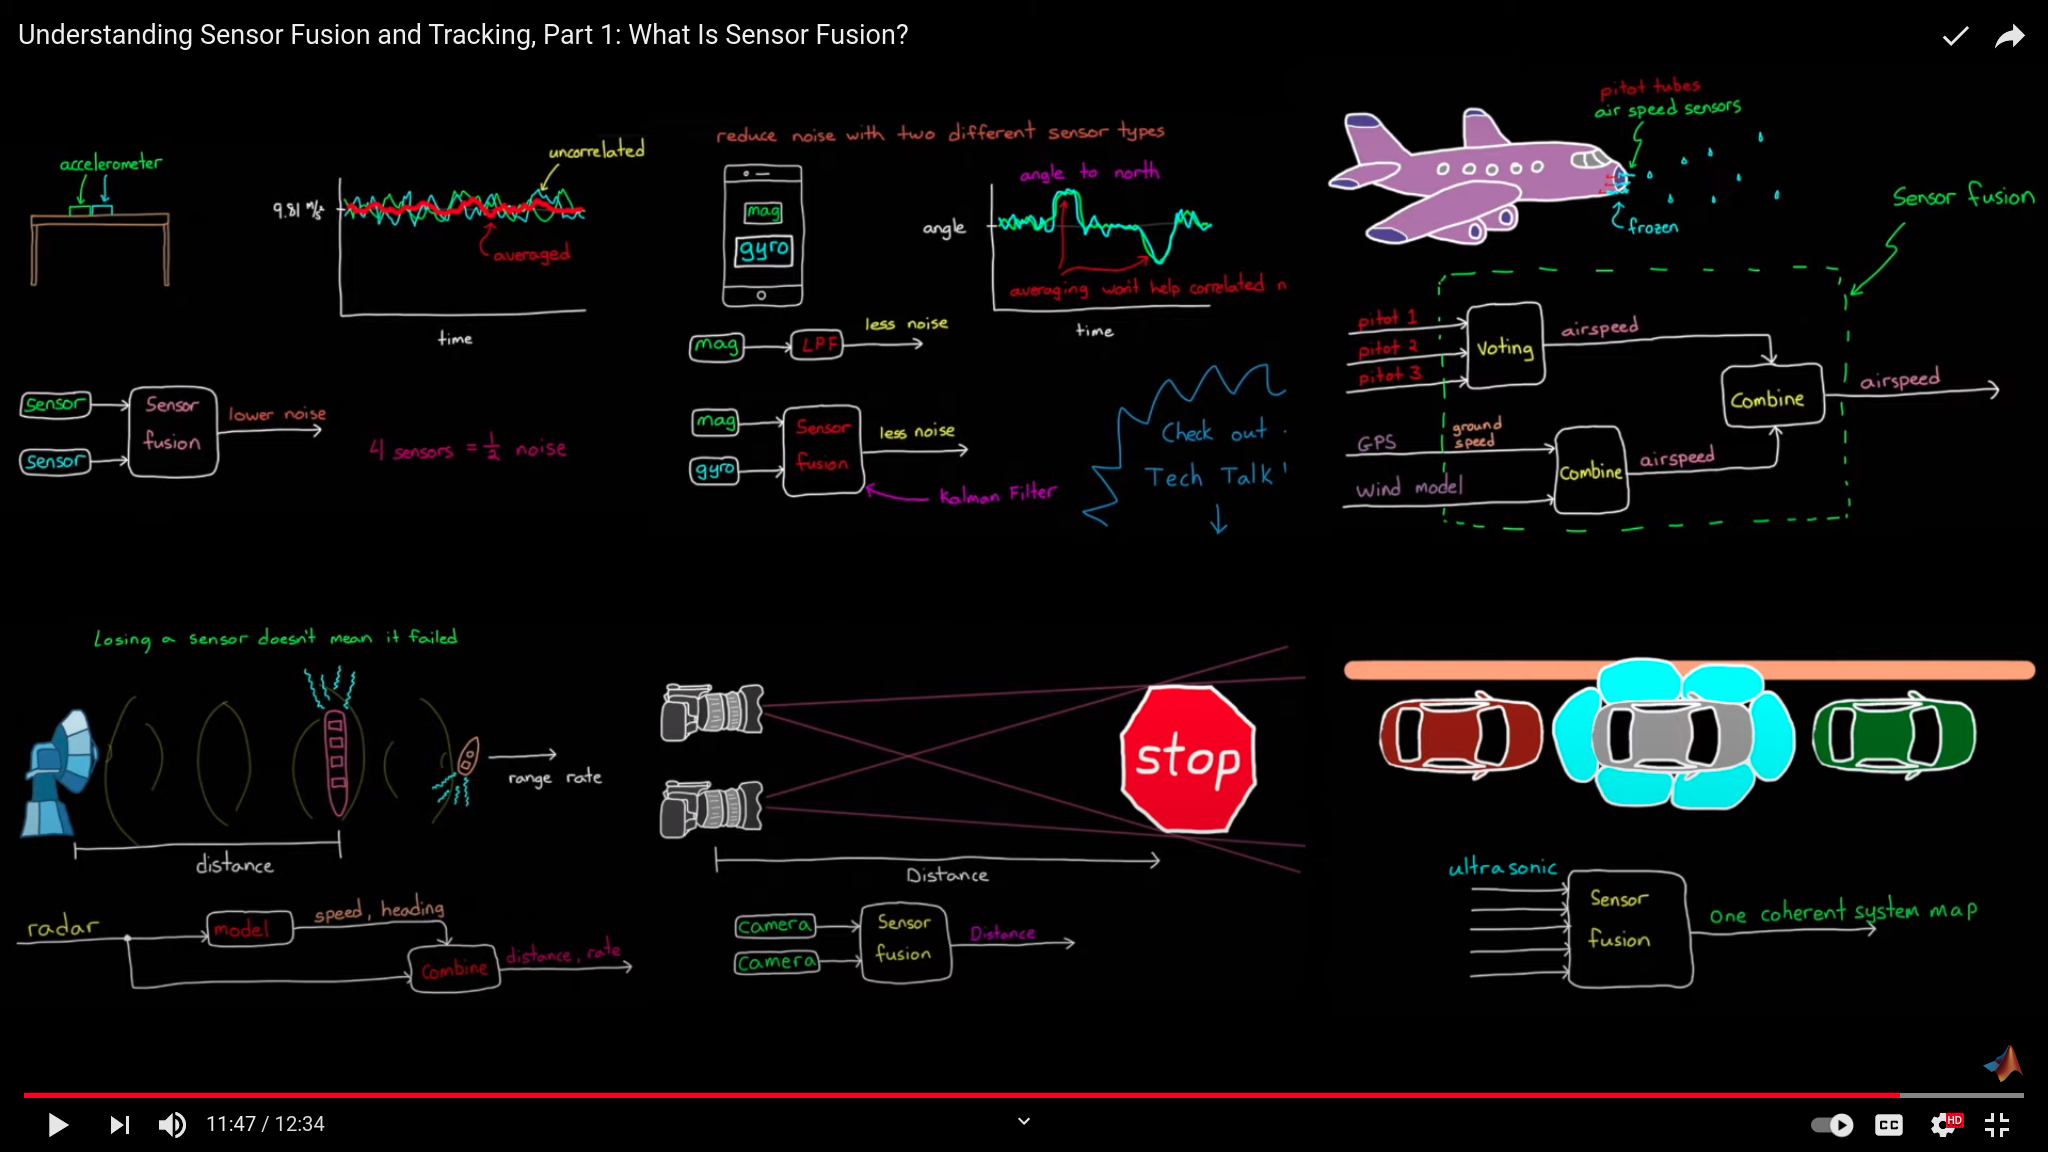 Understanding Sensor Fusion and Tracking, Part 1: What Is Sensor Fusion?
accelerometer
uncorrelated
9.81 m/s²
averaged
time
sensor
sensor
Sensor
fusion
lower noise
4 sensors = 1/2 noise
reduce noise with two different sensor types
mag
gyro
angle to north
angle
averaging won't help correlated n
time
mag
LPF
less noise
mag
gyro
Sensor
fusion
less noise
Kalman Filter
Check out
Tech Talk
pitot tubes
air speed sensors
frozen
Sensor fusion
pitot 1
pitot 2
pitot 3
Voting
airspeed
GPS
ground
speed
wind model
Combine
airspeed
Combine
airspeed
Losing a sensor doesn't mean it failed
range rate
distance
radar
model
speed, heading
Combine
distance, rate
stop
Distance
camera
camera
Sensor
fusion
Distance
ultrasonic
Sensor
fusion
one coherent system map
11:47 / 12:34
CC
HD